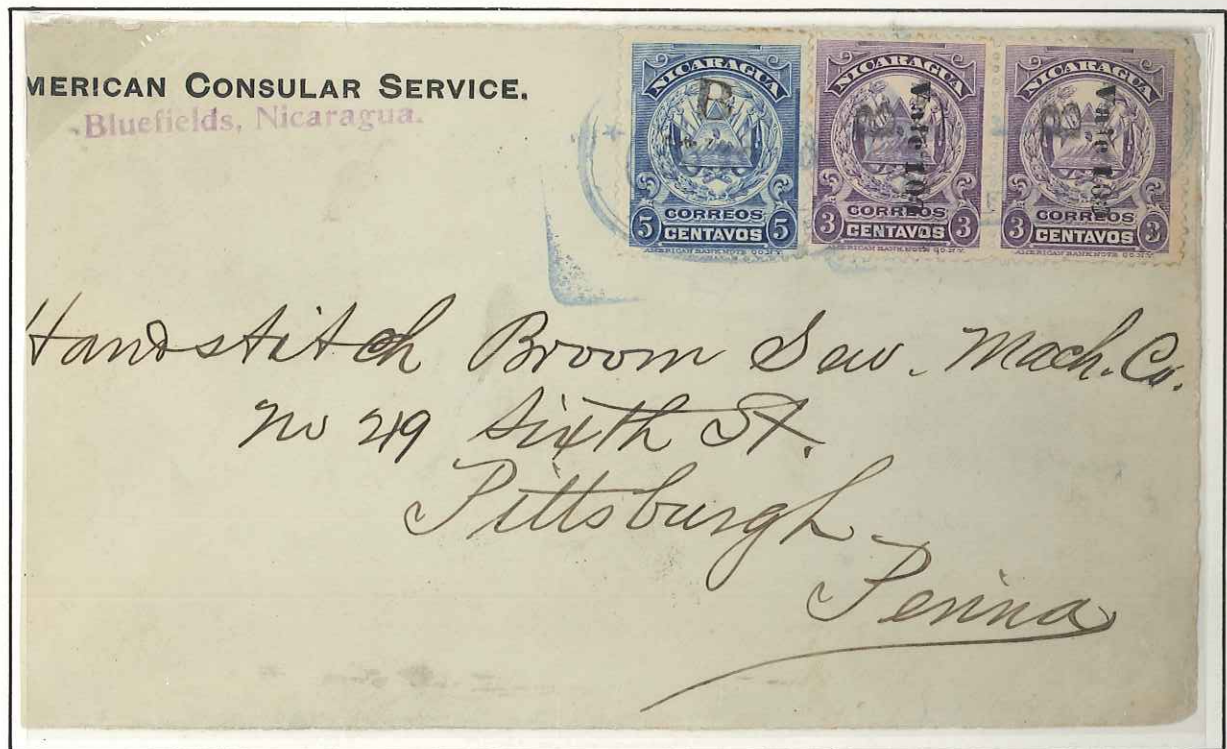 MERICAN CONSULAR SERVICE.
Bluefields, Nicaragua.
NICARAGUA
B
CORREOS
5 CENTAVOS 5
AMERICAN BANK NOTE CO. N.Y.
NICARAGUA
B
Vale 10
CORREOS
3 CENTAVOS 3
AMERICAN BANK NOTE CO. N.Y.
NICARAGUA
B
Vale 10
CORREOS
3 CENTAVOS 3
AMERICAN BANK NOTE CO. N.Y.
Handstitch Broom Sew. Mach. Co.
No 219 Sixth St.
Pittsburgh
Penna